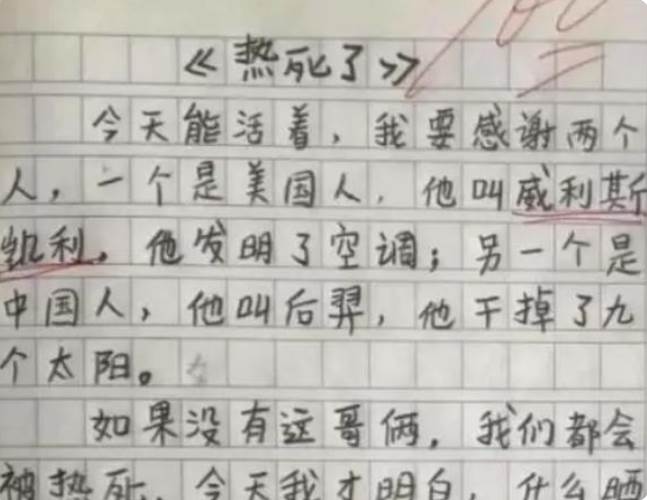 《热死了》
今天能活着，我要感谢两个
人，一个是美国人，他叫威利斯
凯利，他发明了空调；另一个是
中国人，他叫后羿，他干掉了九
个太阳。
如果没有这哥俩，我们都会
被热死。今天我才明白，什么晒